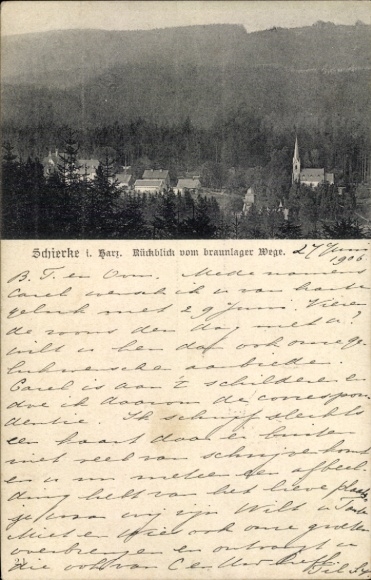 Schierke i. Harz. Rückblick vom braunlager Wege.
27 Juni
1906
B. T. en Oom. Mede namens
Carel wensch ik u van harte
geluk met 29 Juni.
de rooms den dag met u?
wilt u hen dan ook onze ge-
lukwenschen aanbieden
Carel is aan 't schilderen en
doe ik daarom de correspon
dentie. Ik schrijf slechts
een kaart daar er buiten
niet veel van schrijven komt
en u nu meteen een afbeel-
ding hebt van het lieve plaats-
je waar wij zijn. Wilt u Tante
Miet en Wie ook onze groeten
overbrengen en ontvangt u
die ook van C en